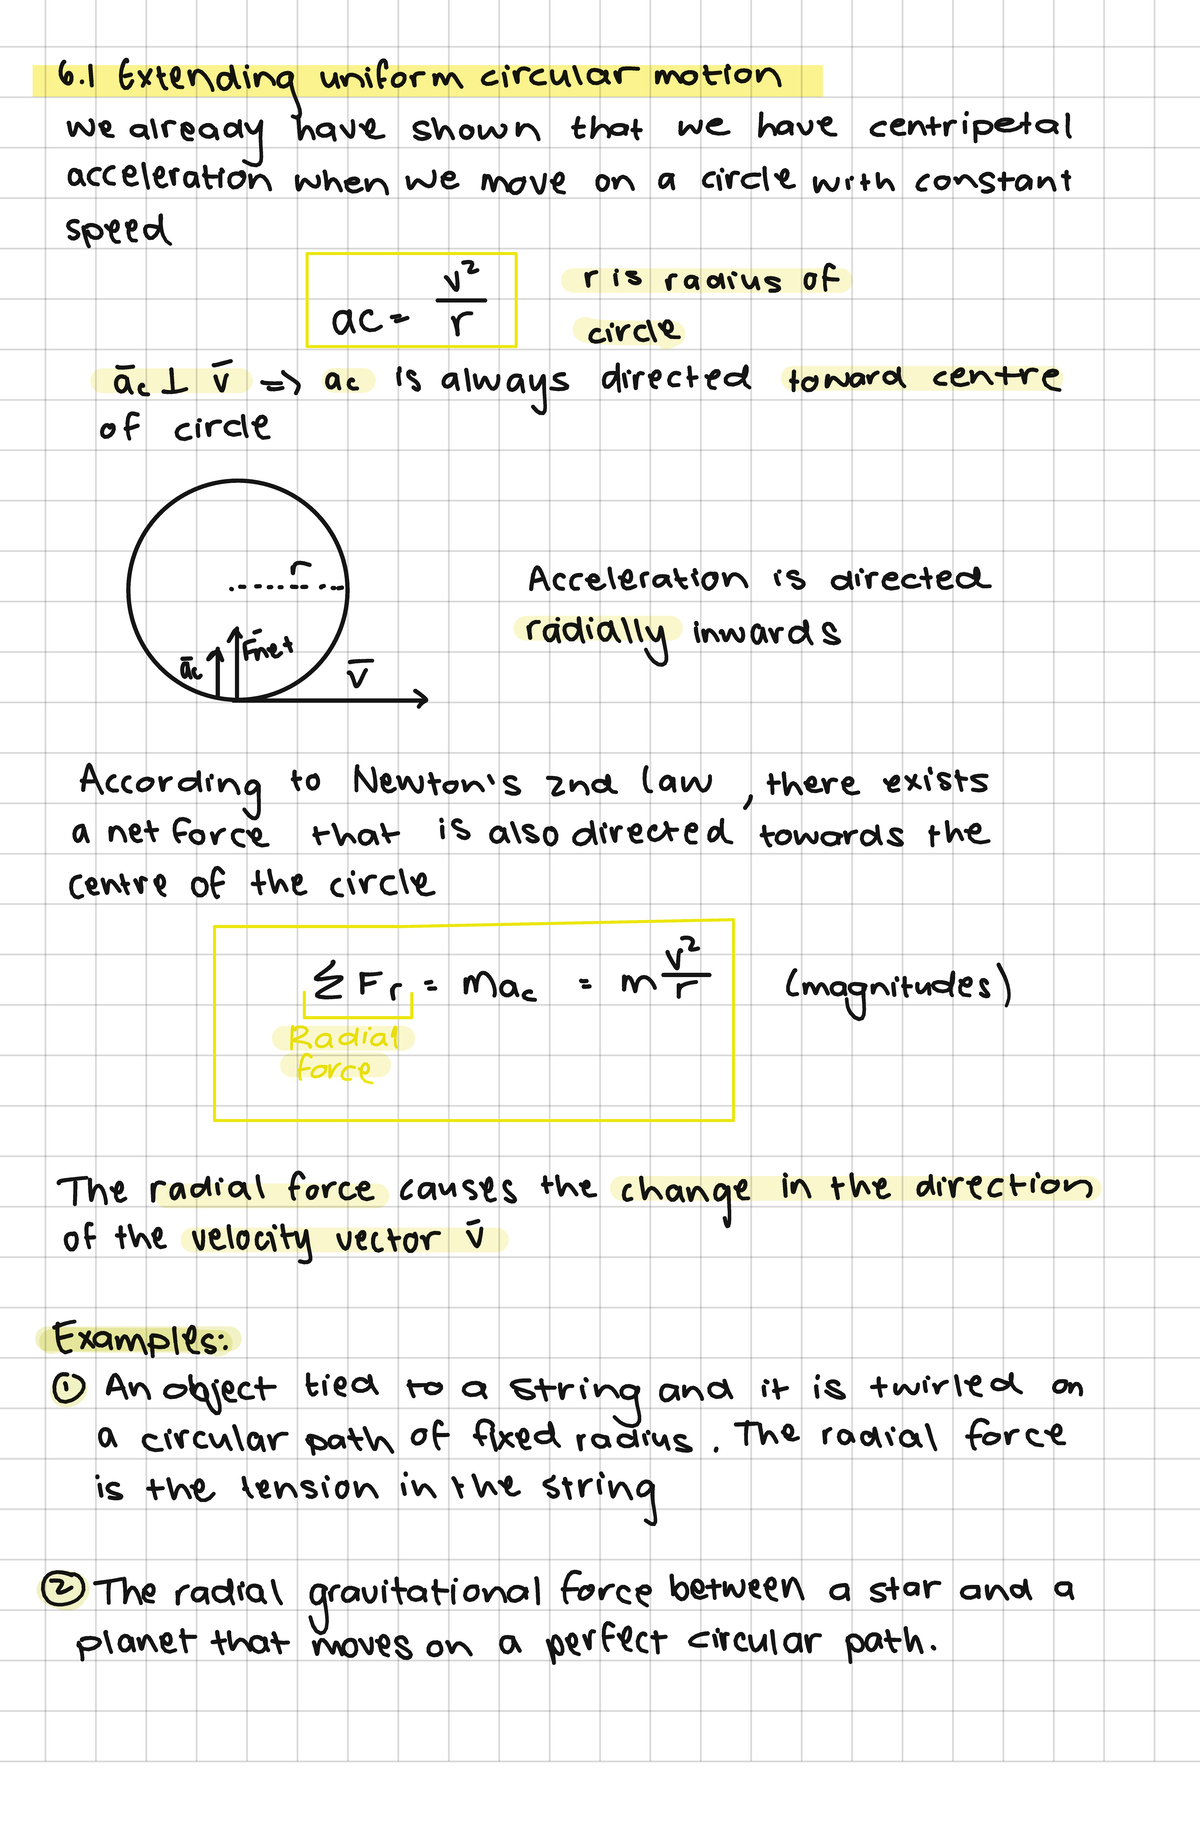 6.1 Extending uniform circular motion
we already have shown that we have centripetal
acceleration when we move on a circle with constant
speed
ac = v²/r
r is radius of
circle
ā꜀ ⊥ v̄ => a꜀ is always directed toward centre
of circle
r
ā꜀
F̄net
v̄
Acceleration is directed
radially inwards
According to Newton's 2nd law, there exists
a net force that is also directed towards the
centre of the circle
∑Fᵣ = ma꜀ = m v²/r (magnitudes)
Radial
force
The radial force causes the change in the direction
of the velocity vector v̄
Examples:
① An object tied to a string and it is twirled on
a circular path of fixed radius. The radial force
is the tension in the string
② The radial gravitational force between a star and a
planet that moves on a perfect circular path.